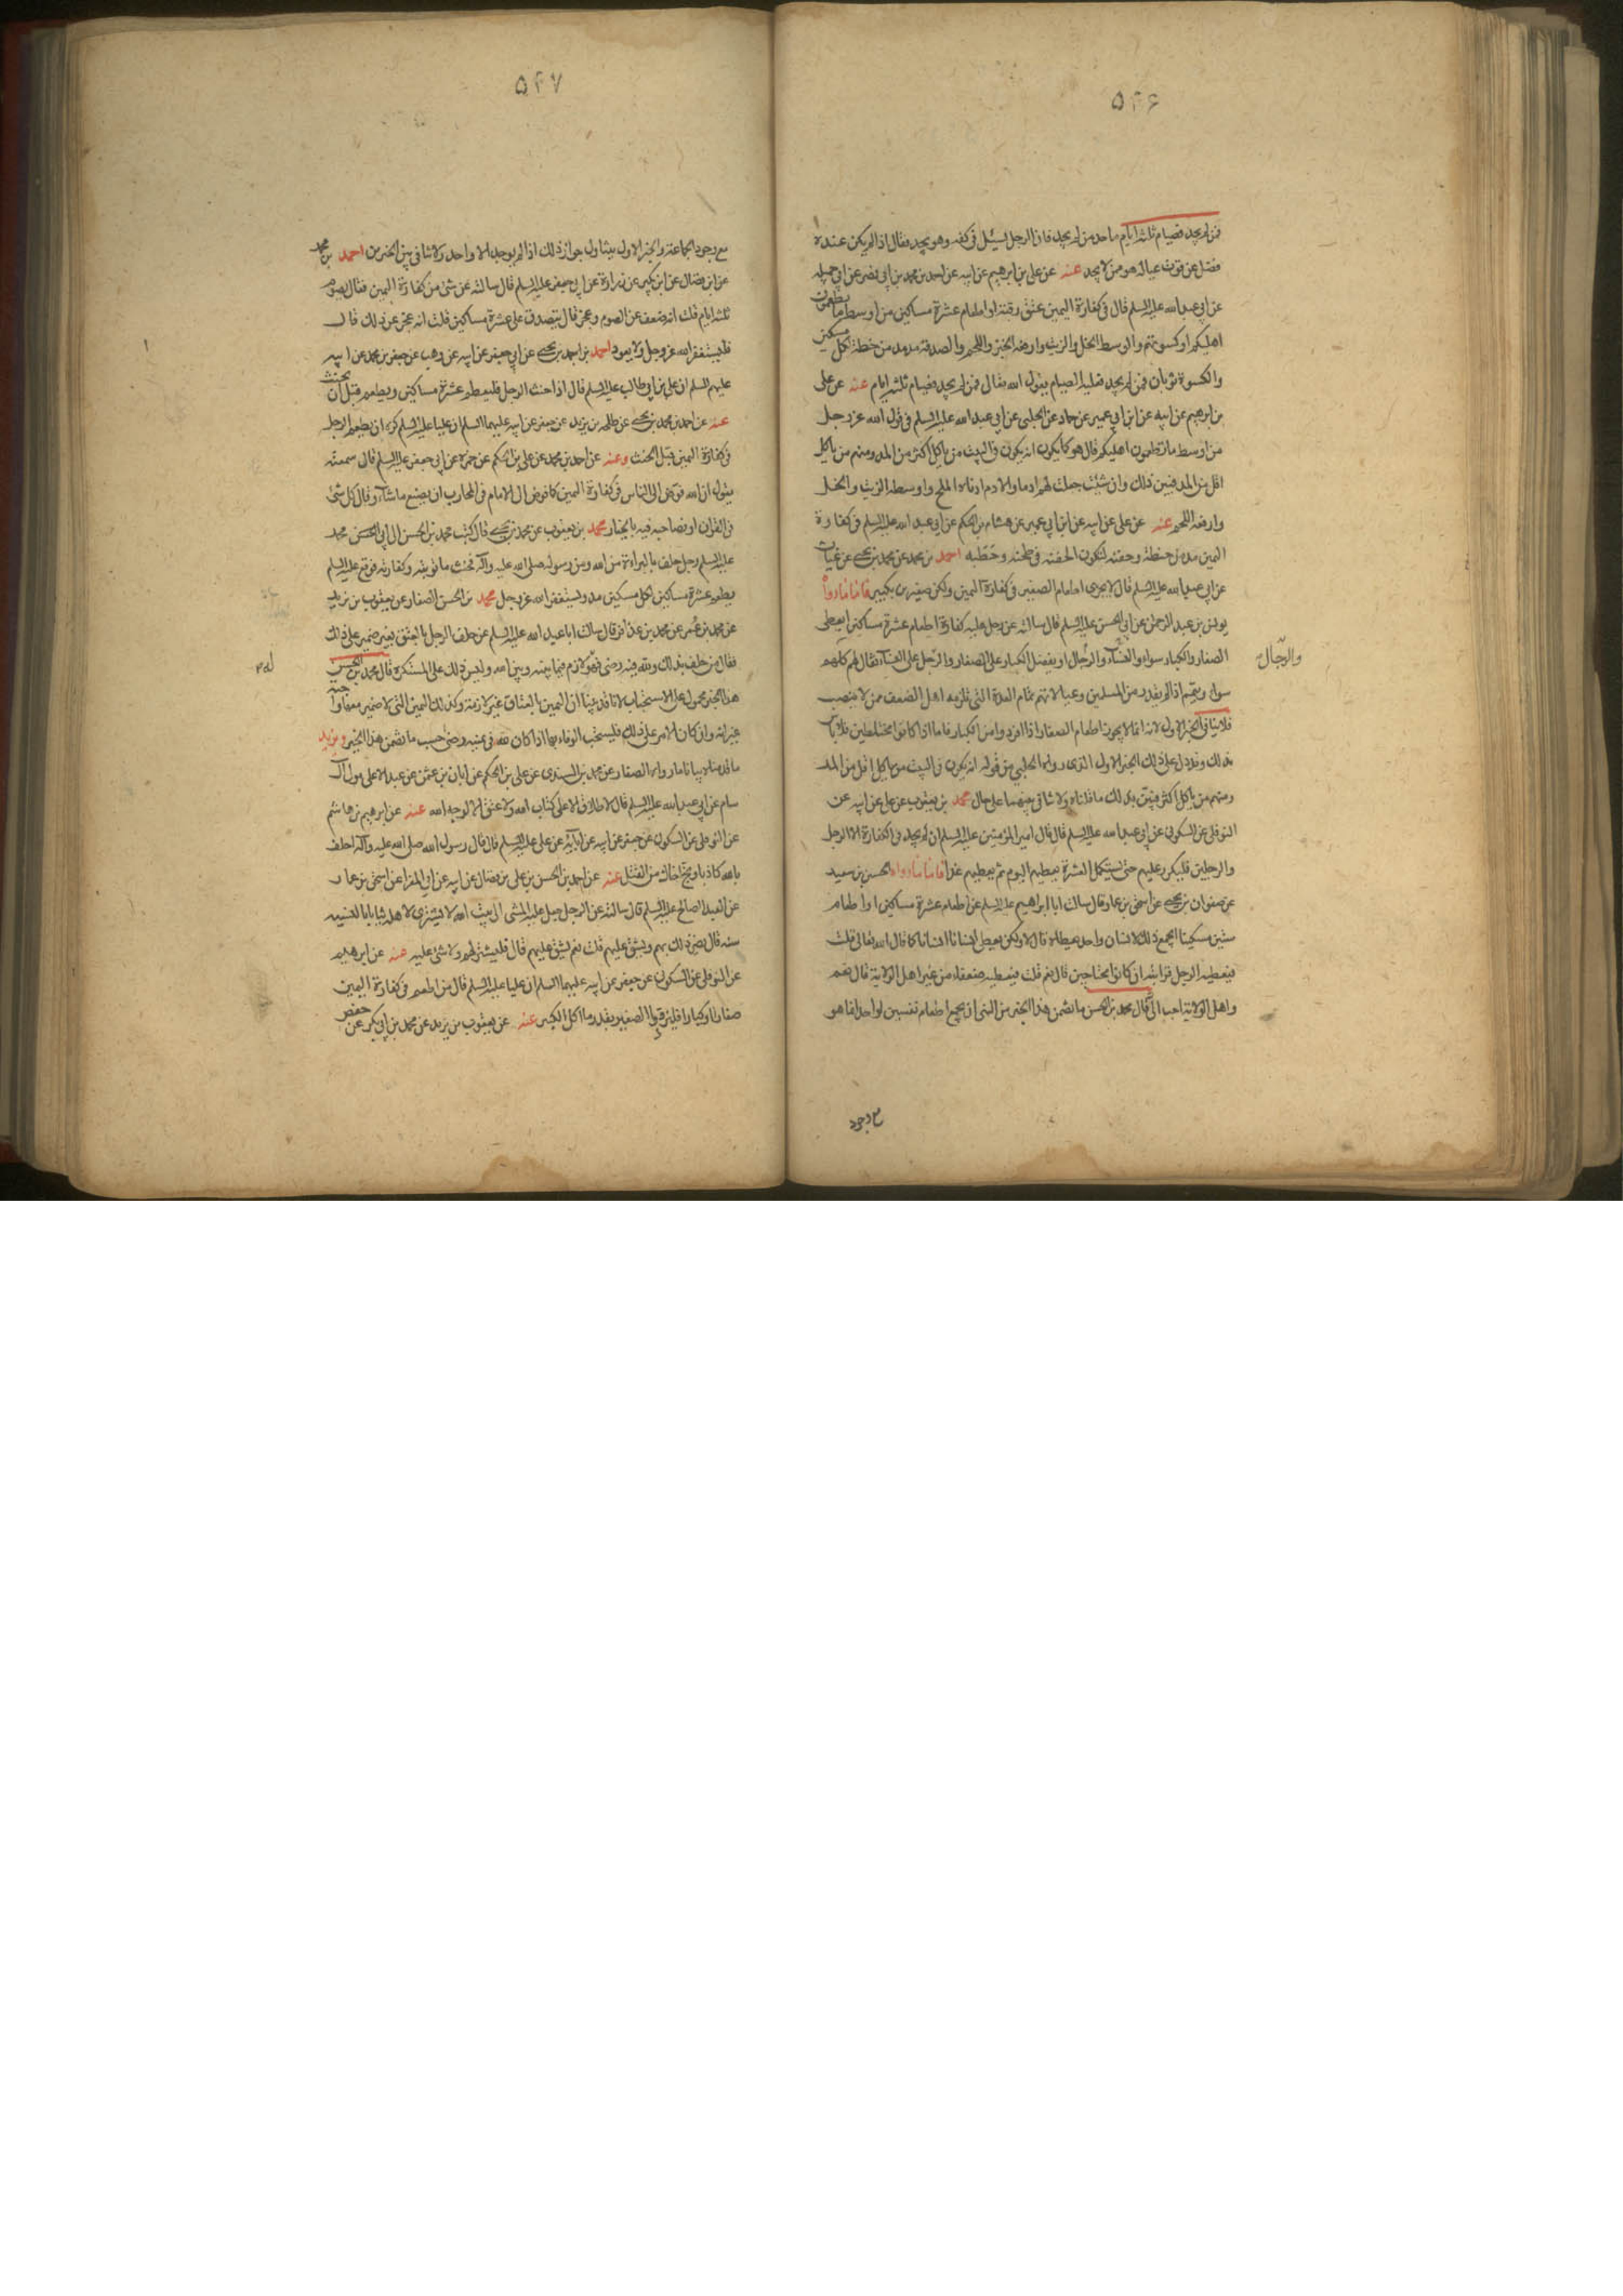 ۵۴۶
فمن لم يجد فصيام ثلثة ايام ما حد من لم يجد فان الرجل ليسئل فى كفه وهو يجد فقال اذا لم يكن عنده
فضل عن قوت عياله فهو ممن لا يجد عنه عن على بن ابرهيم عن ابيه عن احمد بن محمد بن ابى نصر عن ابى جميله
عن ابى عبد الله عليه السلم قال فى كفارة اليمين عتق رقبة او اطعام عشرة مساكين من اوسط ما تطعمون
اهليكم او كسوتهم والوسط الخل والزيت وارفعه الخبز واللحم والصدقة مد مد من حنطة لكل مسكين
والكسوة ثوبان فمن لم يجد فعليه الصيام يقول الله تعالى فمن لم يجد فصيام ثلثة ايام عنه عن على
بن ابرهيم عن ابيه عن ابن ابى عمير عن حماد عن الحلبى عن ابى عبد الله عليه السلم فى قول الله عز وجل
من اوسط ما تطعمون اهليكم قال هو كما يكون انه يكون فى البيت من ياكل اكثر من المد ومنهم من ياكل
اقل من المد فبين ذلك وان شئت جعلت لهم ادما والادم ادناه الملح واوسطه الزيت والخل
وارفعه اللحم عنه عن على عن ابيه عن ابن ابى عمير عن هشام بن الحكم عن ابى عبد الله عليه السلم فى كفارة
اليمين مد من حنطة وحفنة لتكون الحفنة فى طحنه وحطبه احمد بن محمد عن محمد بن يحيى عن غياث
عن ابى عبد الله عليه السلم قال لا يجزى اطعام الصغير فى كفارة اليمين ولكن صغيرين بكبير فاما ما رواه
يونس بن عبد الرحمن عن ابى الحسن عليه السلم قال سالته عن رجل عليه كفارة اطعام عشرة مساكين ايعطى
الصغار والكبار سواء والنساء والرجال او يفضل الكبار على الصغار والرجل على النساء فقال لهم كلهم
والرجال
سواء ويتمم اذا لم يقدر من المسلمين وعيالاتهم تمام العدة التى تلزمه اهل الضعف ممن لا ينصب
فلا ينافى الخبر الاول لانه انما لا يجوز اطعام الصغار اذا افردوا من الكبار فاما اذا كانوا مختلطين فلا باس
بذلك وقد دل على ذلك الخبر الاول الذى رواه الحلبى من قوله انه يكون فى البيت من ياكل اقل من المد
ومنهم من ياكل اكثر فبين بذلك ما قلناه ولا تنافى بينهما على حال محمد بن يعقوب عن على عن ابيه عن
النوفلى عن السكونى عن ابى عبد الله عليه السلم قال قال امير المؤمنين عليه السلم ان لم يجد فى الكفارة الا الرجل
والرجلين فليكرر عليهم حتى يستكمل العشرة يعطيهم اليوم ثم يعطيهم غدا فاما ما رواه الحسين بن سعيد
عن صفوان بن يحيى عن اسحق بن عمار قال سالت ابا ابراهيم عليه السلم عن اطعام عشرة مساكين او اطعام
ستين مسكينا ايجمع ذلك لانسان واحد يعطاه قال لا ولكن يعطى انسانا انسانا كما قال الله تعالى قلت
فيعطيه الرجل قرابته ان كانوا محتاجين قال نعم قلت فيعطيه ضعفاء من غير اهل الولاية قال نعم
واهل الولاية احب الى قال محمد بن الحسن ما تضمن هذا الخبر من النهى ان يجمع اطعام نفسين لواحد انما هو
مع وجود
۵۴۷
مع وجود الجماعة والخبر الاول يتناول جواز ذلك اذا لم يوجد الا واحد ولا تنافى بين الخبرين احمد بن محمد
عن ابن فضال عن ابن بكير عن زرارة عن ابى جعفر عليه السلم قال سالته عن شئ من كفارة اليمين فقال يصوم
ثلثة ايام قلت انه ضعف عن الصوم وعجز قال يتصدق على عشرة مساكين قلت انه عجز عن ذلك قال
فليستغفر الله عز وجل ولا يعود احمد بن احمد بن يحيى عن ابى جعفر عن ابيه عن وهب عن جعفر بن محمد عن ابيه
عليهم السلم ان على بن ابى طالب عليه السلم قال اذا حنث الرجل فليطعم عشرة مساكين ويطعم قبل ان يحنث
عنه عن احمد بن محمد بن يحيى عن طلحه بن يزيد عن جعفر عن ابيه عليهما السلم ان عليا عليه السلم كره ان يطعم الرجل
فى كفارة اليمين قبل الحنث وعنه عن احمد بن محمد عن على بن الحكم عن حمزه عن ابى جعفر عليه السلم قال سمعته
يقول ان الله فوض الى الناس فى كفارة اليمين كما فوض الى الامام فى المحارب ان يصنع ما شاء وقال كل شئ
فى القران او فصاحبه فيه بالخيار محمد بن يعقوب عن محمد بن يحيى قال كتب محمد بن الحسن الى ابى الحسن محمد
عليه السلم رجل حلف بالبراءة من الله ومن رسوله صلى الله عليه وآله فحنث ما توبته وكفارته فوقع عليه السلم
يطعم عشرة مساكين لكل مسكين مد ويستغفر الله عز وجل محمد بن الحسن الصفار عن يعقوب بن يزيد
عن محمد بن عمر عن محمد بن عذافر قال سالت ابا عبد الله عليه السلم عن حلف الرجل بالعتق بغير ضمير على ذلك
فقال من حلف بذلك ولله فيه رضى فهو لازم فيما بينه وبين الله وليس ذلك على المستكره قال محمد بن الحسن
هذا الخبر محمول على الاستحباب لانا قد بينا ان اليمين بالعتاق غير لازمة وكذلك اليمين التى لا ضمير معها
غير انه وان كان الامر على ذلك فليستحب الوفاء بها اذا كان لله فى يمينه رضى حسب ما تضمن هذا الخبر ويزيد
ما قدمناه بيانا ما رواه الصفار عن محمد بن السندى عن على بن الحكم عن ابان بن عثمن عن عبد الاعلى مولى آل
سام عن ابى عبد الله عليه السلم قال لا طلاق الا على كتاب الله ولا عتق الا لوجه الله عنه عن ابرهيم بن هاشم
عن النوفلى عن السكونى عن جعفر عن ابيه عن ابائه عن على عليه السلم قال قال رسول الله صلى الله عليه وآله احلف
بالله كاذبا ونج اخاك من القتل عنه عن احمد بن الحسن بن على بن فضال عن ابيه عن ابى المغرا عن اسحق بن عمار
عن العبد الصالح عليه السلم قال سالته عن الرجل جعل عليه المشى الى بيت الله لا يشترى لاهله ثيابا بالنسيه
سنه قال يضر ذلك بهم ويشق عليهم قلت نعم يشق عليهم قال فليشتر لهم ولا شئ عليه عنه عن ابرهيم
عن النوفلى عن السكونى عن جعفر عن ابيه عليهما السلم ان عليا عليه السلم قال من اطعم فى كفارة اليمين
صغارا وكبارا فليزود الصغير بقدر ما اكل الكبير عنه عن يعقوب بن يزيد عن محمد بن ابى بكر عن حفص